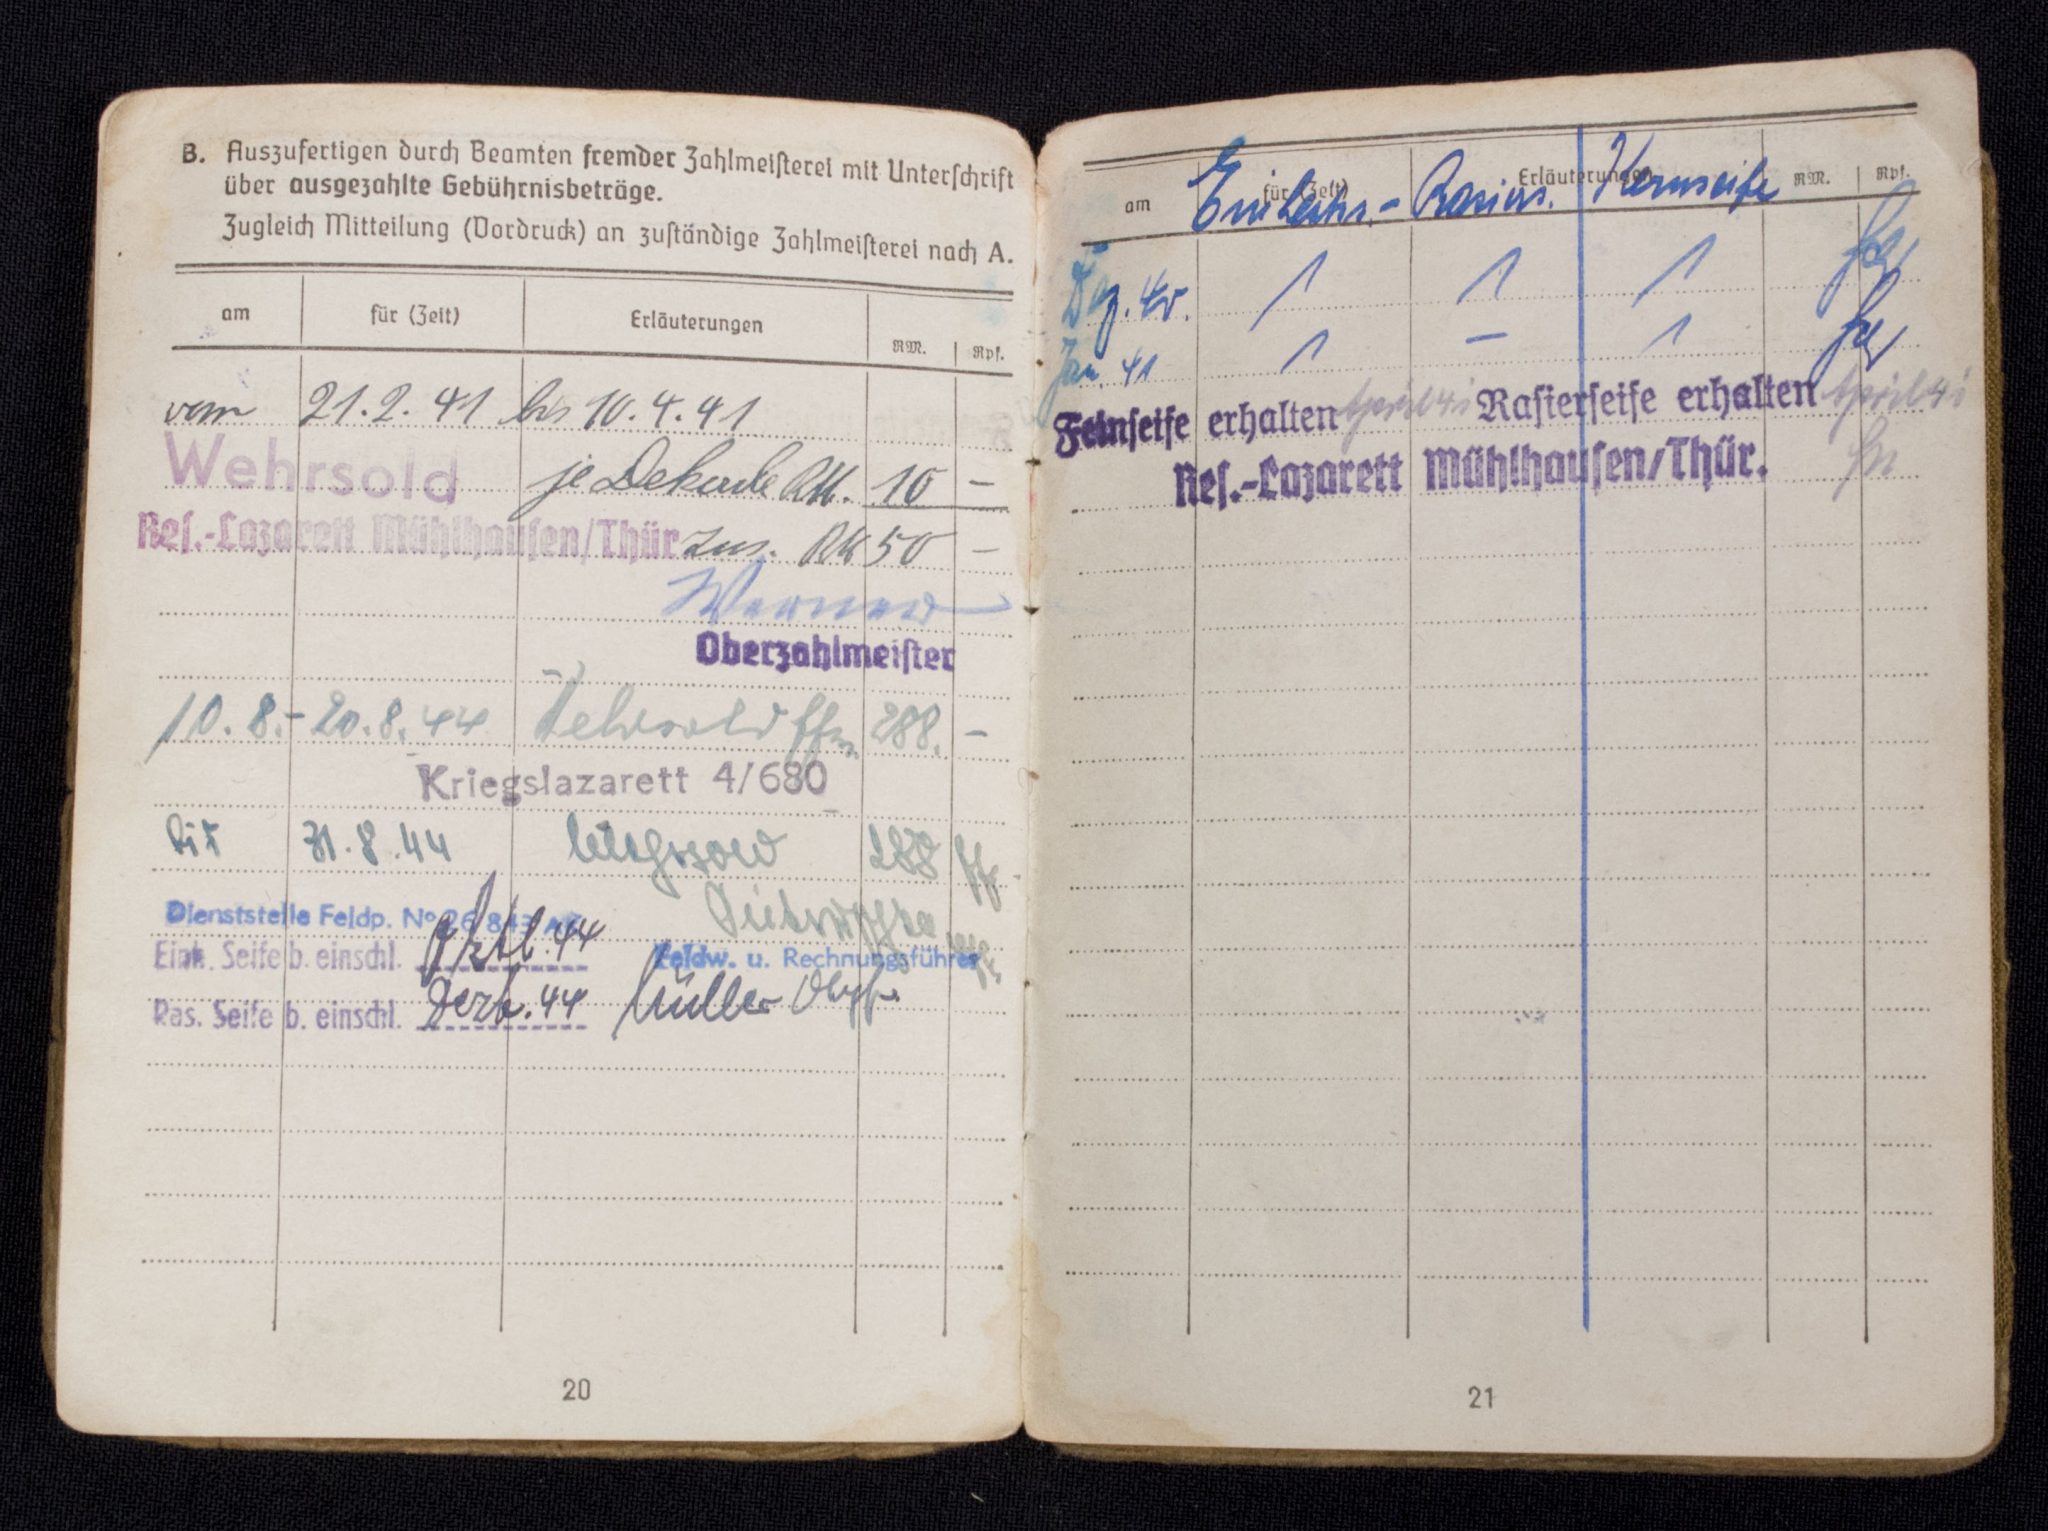 B. Auszufertigen durch Beamten fremder Zahlmeisterei mit Unterschrift
über ausgezahlte Gebührnisbeträge.
Zugleich Mitteilung (Vordruck) an zuständige Zahlmeisterei nach A.
am für (Zeit) Erläuterungen RM. Rpf.
vom 21.2.41 bis 10.4.41
Wehrsold je Dekade RM. 10 –
Res.-Lazarett Mühlhausen/Thür zus. RM 50 –
Werner
Oberzahlmeister
10.8.- 20.8.44 Wehrsold ffrs 288. –
Kriegslazarett 4/680
bis 31.8.44 288
Dienststelle Feldp. No 26843
Einh. Seife b. einschl. 44
Feldw. u. Rechnungsführer
Ras. Seife b. einschl. Dezb. 44 Müller
20
am für (Zeit) Erläuterungen RM. Rpf.
Einheits.- Rasiers. Kernseife
Dez. 40. / / /
Jan. 41 / – /
Feinseife erhalten April 41 Rasierseife erhalten April 41
Res.-Lazarett Mühlhausen/Thür.
21